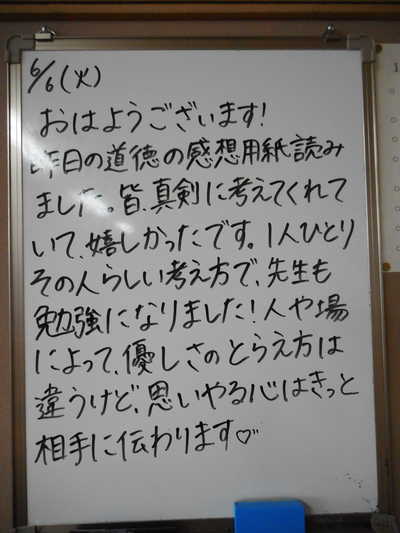 6/6(火)
おはようございます!
昨日の道徳の感想用紙読み
ました。皆、真剣に考えてくれて
いて、嬉しかったです。1人ひとり
その人らしい考え方で、先生も
勉強になりました!人や場
によって、優しさのとらえ方は
違うけど、思いやる心はきっと
相手に伝わります♡